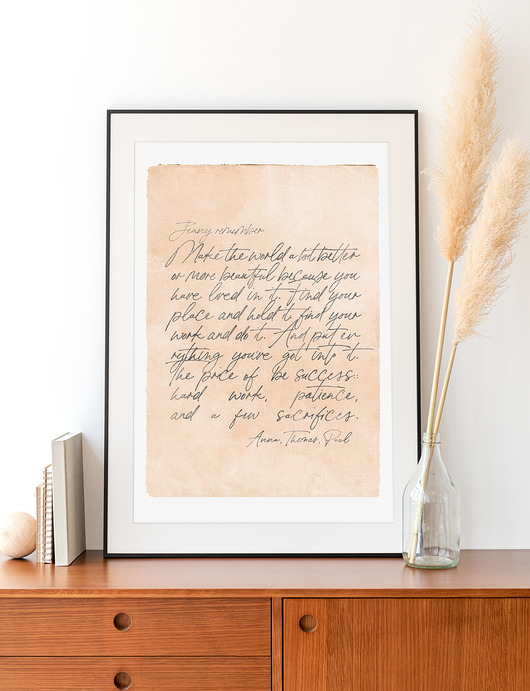 Jenny remember
Make the world a bit better
or more beautiful because you
have lived in it. Find your
place and hold it, find your
work and do it. And put ev
rything you've got into it.
The price of be success:
hard work, patience,
and a few sacrifices.
Anna, Thomas, Paul